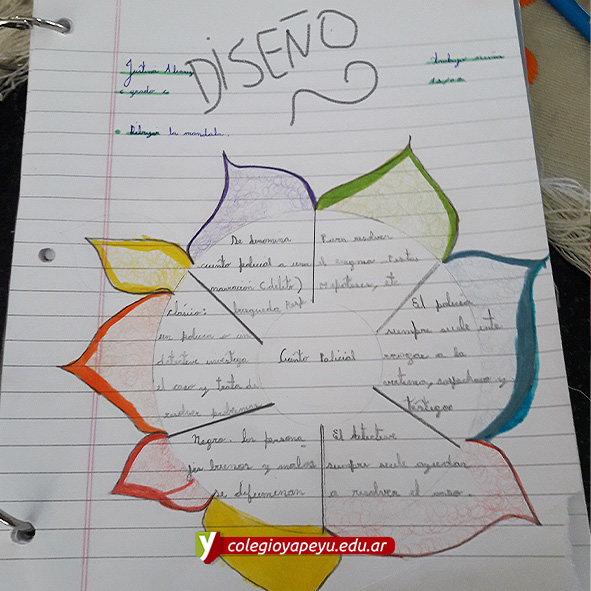 DISEÑO
Dibujar la mandala.
Se denomina
cuento policial a una
narración (delito)
busqueda
Para resolver
el enigma. Pistas
Hipotesis, etc
El policia
siempre suele inte
rrogar a la
victima, sospechoso y
testigos
El detective
siempre suele ayudar
a resolver el caso.
Negro. los persona
jes buenos y malos
se difuminan
clásico:
un policia o un
detective investiga
el caso y trata de
resolver
Cuento Policial
colegioyapeyu.edu.ar